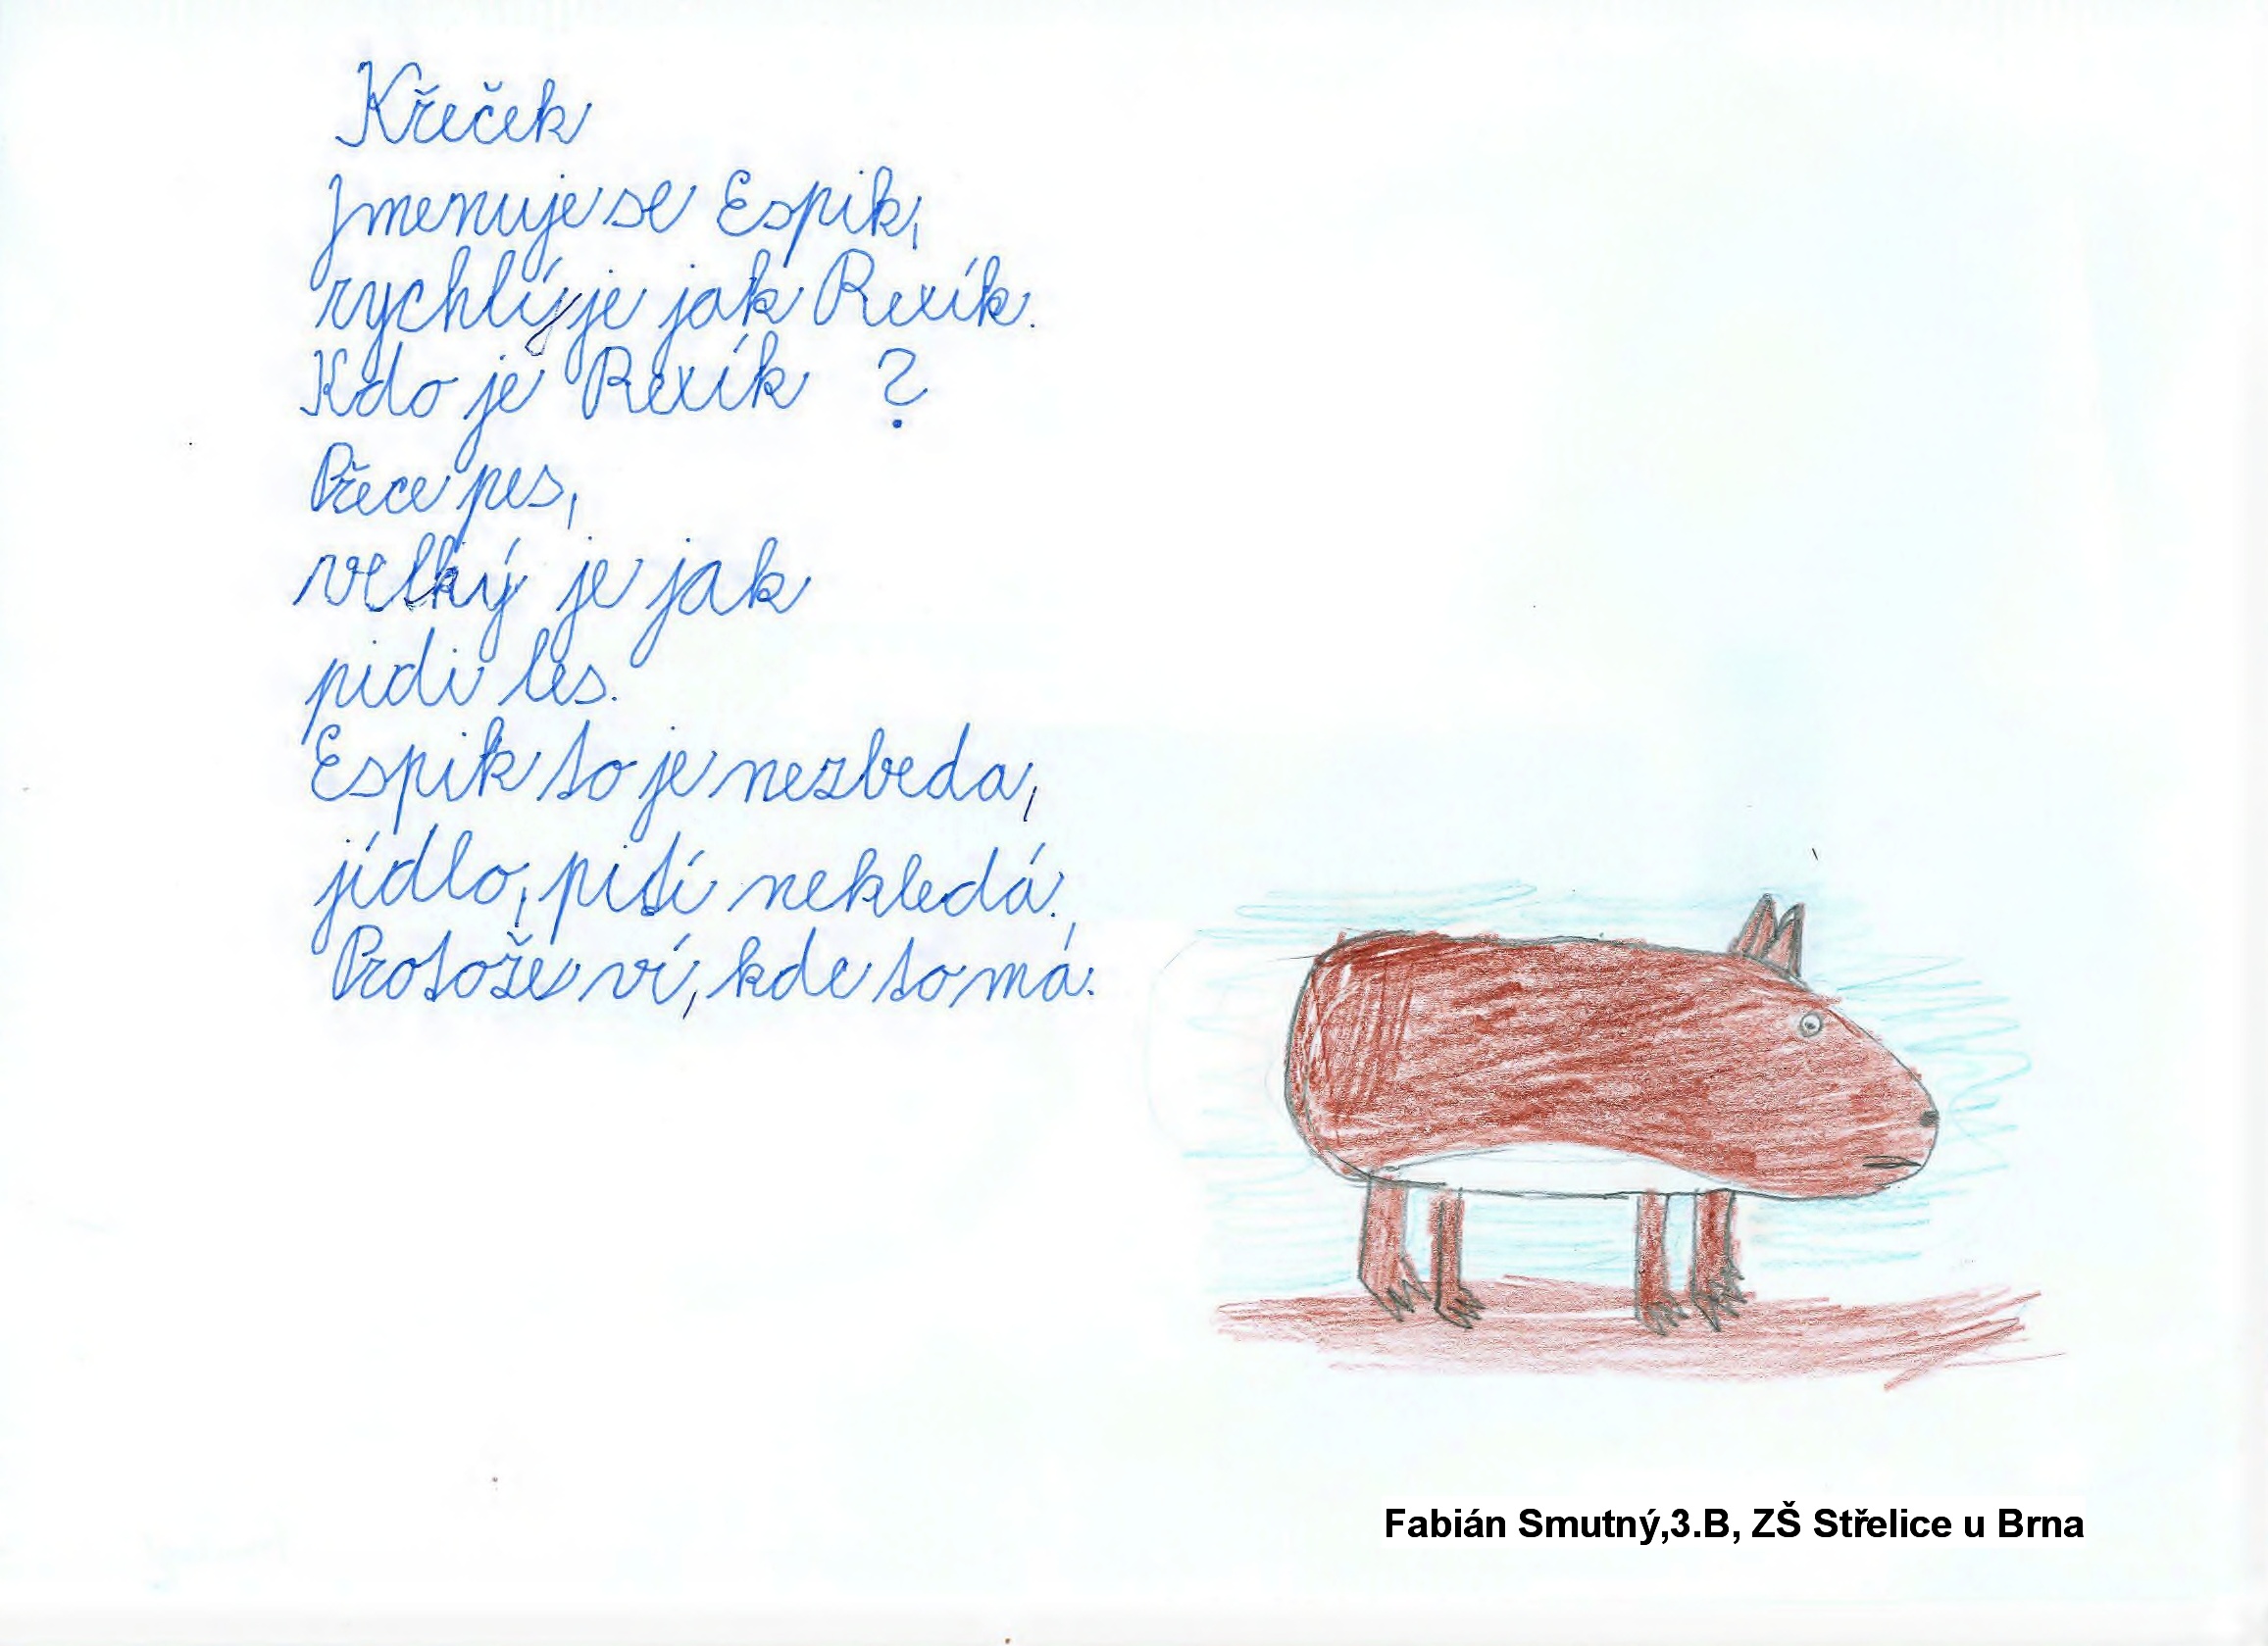 Křeček
Jmenuje se Espik,
rychlý je jak Rexík.
Kdo je Rexík ?
Přece pes,
velký je jak
pidi les.
Espik to je nezbeda,
jídlo, pití nekledá.
Protože ví, kde to má.
Fabián Smutný,3.B, ZŠ Střelice u Brna